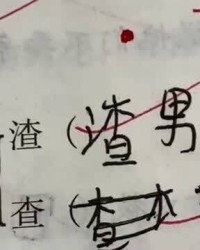 渣（渣男
查（查